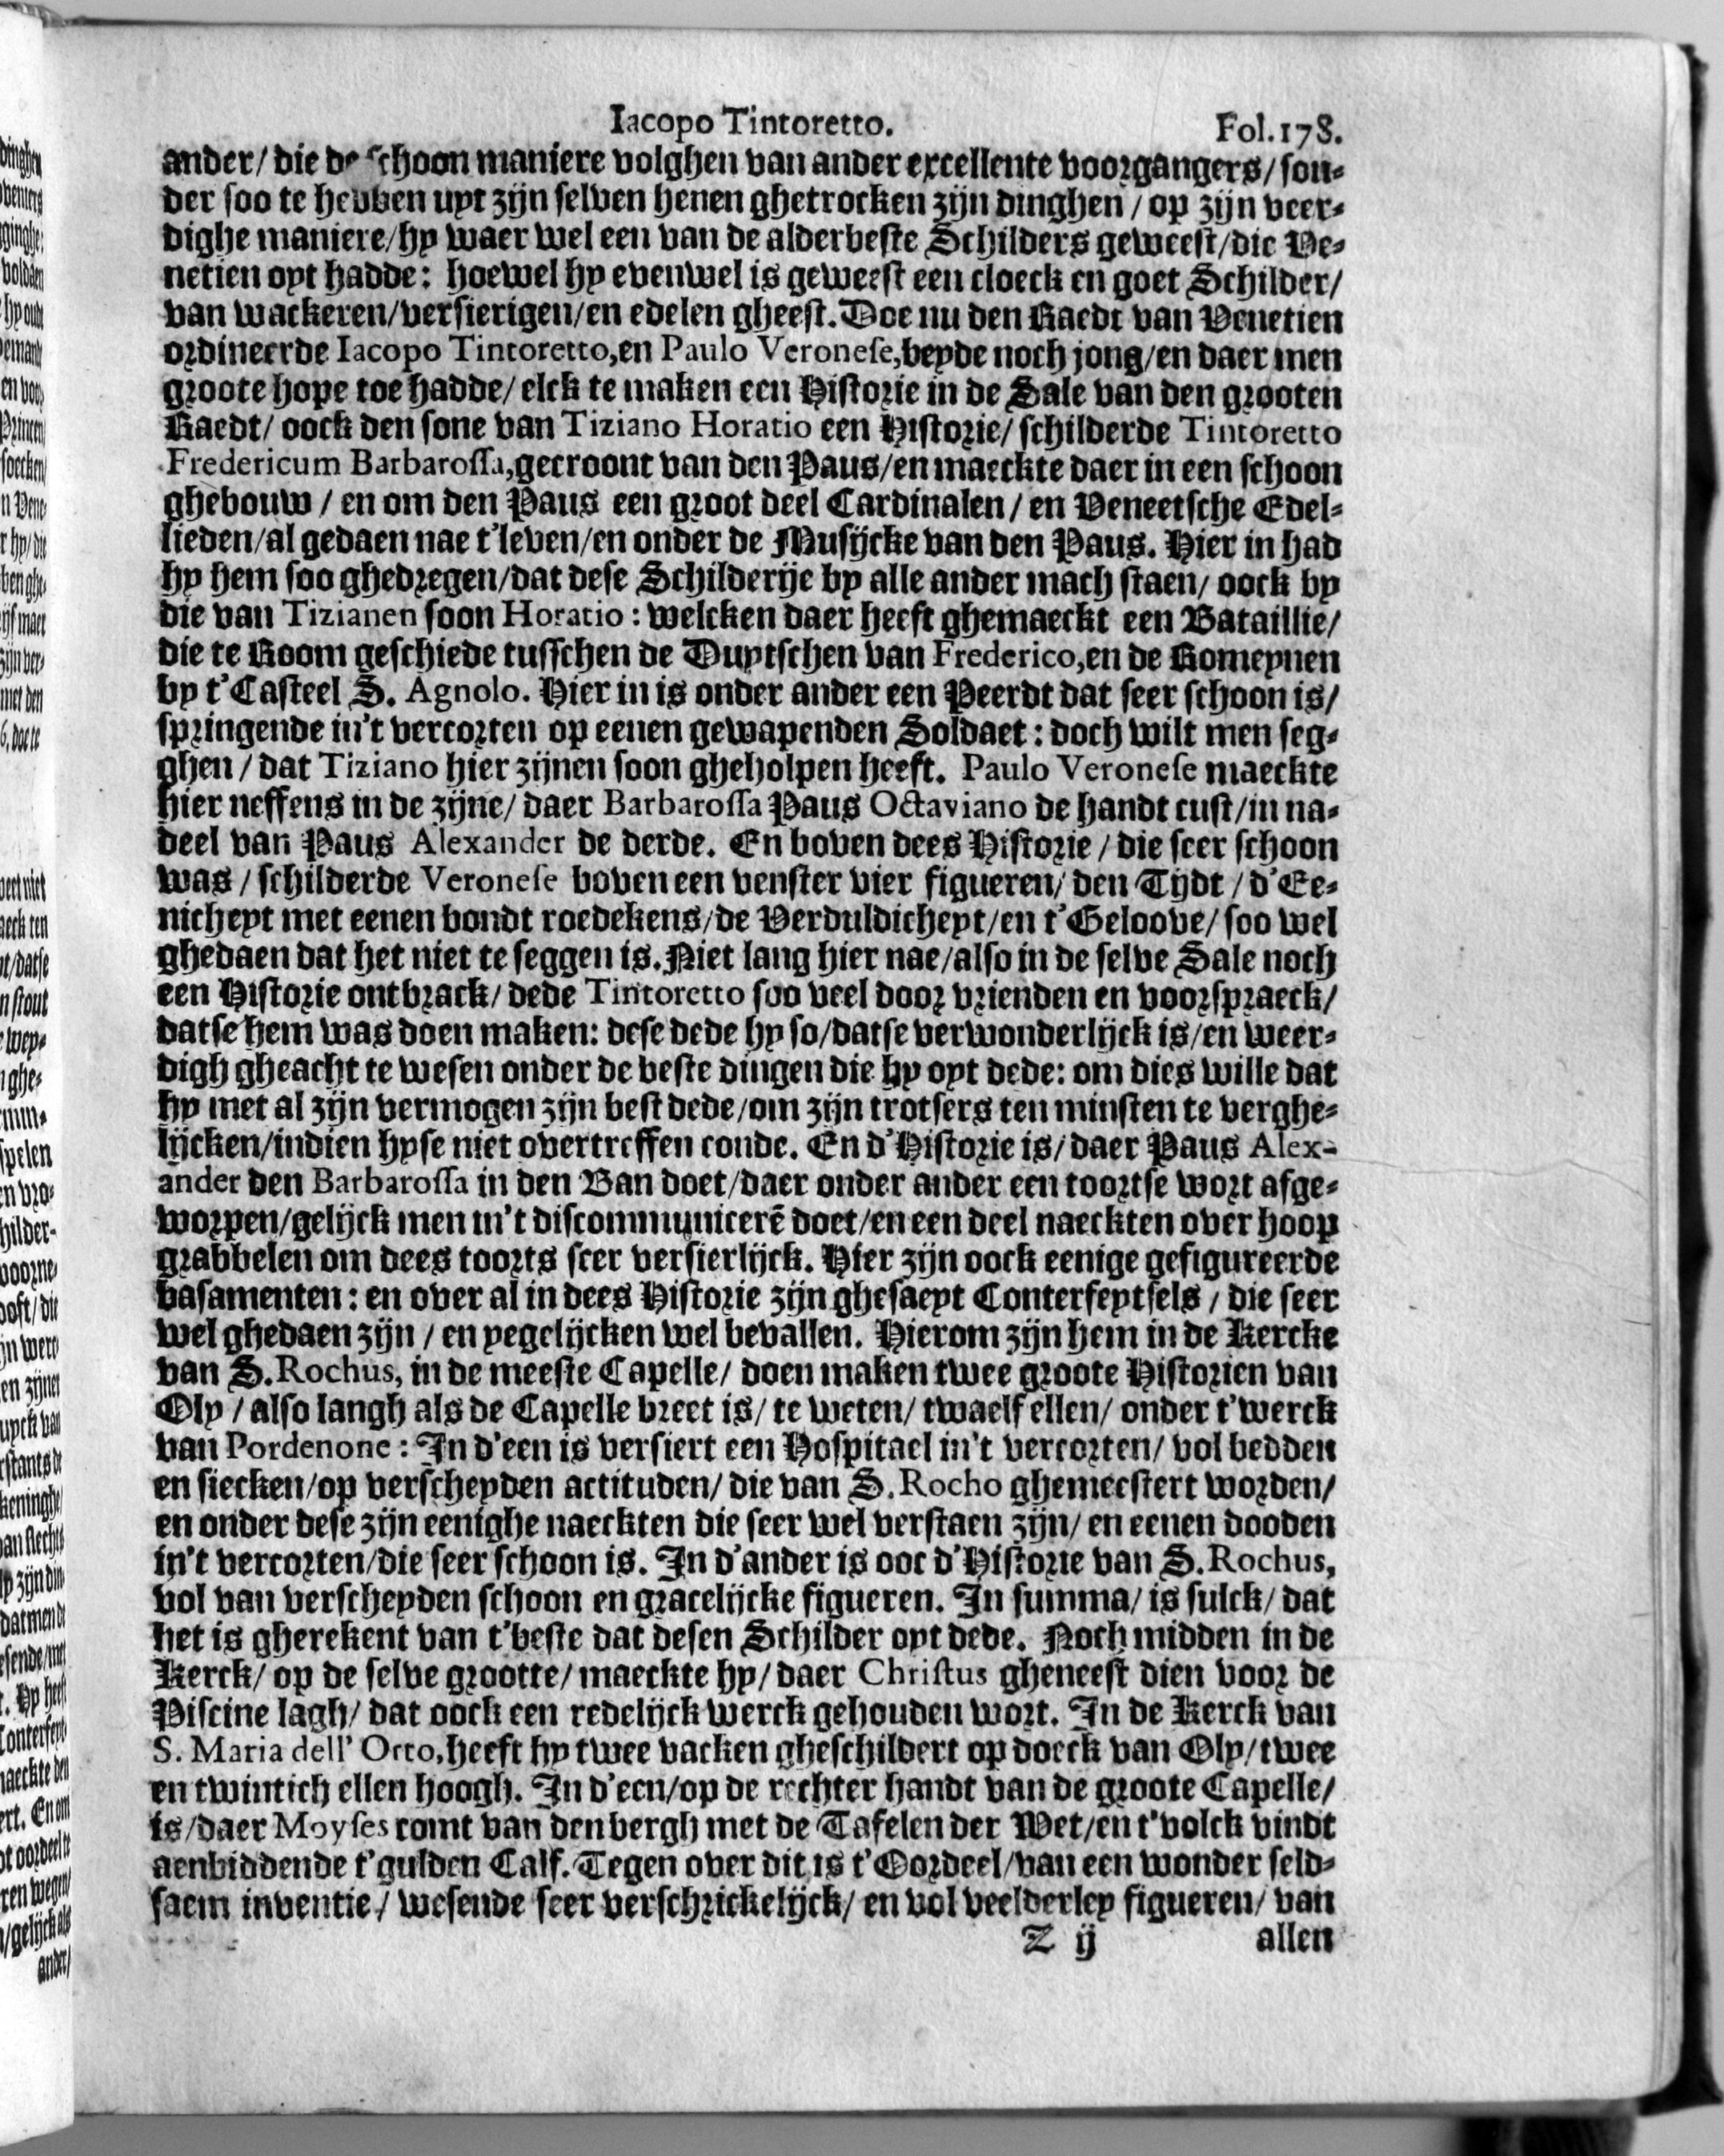 Iacopo Tintoretto. Fol.178.
ander/ die de schoon maniere volghen van ander excellente voorgangers/ son-
der soo te hebben uyt zijn selven henen ghetrocken zijn dinghen / op zijn veer-
dighe maniere/hy waer wel een van de alderbeste Schilders geweest/die Ve-
netien oyt hadde: hoewel hy evenwel is geweest een cloeck en goet Schilder/
van wackeren/versierigen/en edelen gheest. Doe nu den Raedt van Venetien
ordineerde Iacopo Tintoretto,en Paulo Veronese,beyde noch jong/en daer men
groote hope toe hadde/ elck te maken een Historie in de Sale van den grooten
Raedt/ oock den sone van Tiziano Horatio een Historie/ schilderde Tintoretto
Fredericum Barbarossa,gecroont van den Paus/en maeckte daer in een schoon
ghebouw / en om den Paus een groot deel Cardinalen / en Veneetsche Edel-
lieden/al gedaen nae t'leven/en onder de Musijcke van den Paus. Hier in had
hy hem soo ghedregen/dat dese Schilderije by alle ander mach staen/ oock by
die van Tizianen soon Horatio : welcken daer heeft ghemaeckt een Bataillie/
die te Room geschiede tusschen de Duytschen van Frederico,en de Romeynen
by t'Casteel S. Agnolo. Hier in is onder ander een Peerdt dat seer schoon is/
springende in't vercorten op eenen gewapenden Soldaet : doch wilt men seg-
ghen / dat Tiziano hier zijnen soon gheholpen heeft. Paulo Veronese maeckte
hier neffens in de zijne/ daer Barbarossa Paus Octaviano de handt cust/in na-
deel van Paus Alexander de derde. En boven dees Historie / die seer schoon
was / schilderde Veronese boven een venster vier figueren/ den Tijdt / d'Ee-
nicheyt met eenen bondt roedekens/de Verduldicheyt/en t'Geloove/ soo wel
ghedaen dat het niet te seggen is. Niet lang hier nae/also in de selve Sale noch
een Historie ontbrack/ dede Tintoretto soo veel door vrienden en voorspraeck/
datse hem was doen maken: dese dede hy so/datse verwonderlijck is/en weer-
digh gheacht te wesen onder de beste dingen die hy oyt dede: om dies wille dat
hy met al zijn vermogen zijn best dede/om zijn trotsers ten minsten te verghe-
lijcken/indien hyse niet overtreffen conde. En d'Historie is/ daer Paus Alex-
ander den Barbarossa in den Ban doet/daer onder ander een toortse wort afge-
worpen/gelijck men in't discommunicerē doet/en een deel naeckten over hoop
grabbelen om dees toorts seer versierlijck. Hier zijn oock eenige gefigureerde
basamenten : en over al in dees Historie zijn ghesaeyt Conterfeytsels / die seer
wel ghedaen zijn / en yegelijcken wel bevallen. Hierom zijn hem in de Kercke
van S. Rochus, in de meeste Capelle/ doen maken twee groote Historien van
Oly / also langh als de Capelle breet is/ te weten/ twaelf ellen/ onder t'werck
van Pordenone : In d'een is versiert een Hospitael in't vercorten/ vol bedden
en siecken/op verscheyden actituden/ die van S. Rocho ghemeestert worden/
en onder dese zijn eenighe naeckten die seer wel verstaen zijn/ en eenen dooden
in't vercorten/die seer schoon is. In d'ander is ooc d'Historie van S. Rochus,
vol van verscheyden schoon en gracelijcke figueren. In summa/ is sulck/ dat
het is gherekent van t'beste dat desen Schilder oyt dede. Noch midden in de
Kerck/ op de selve grootte/ maeckte hy/ daer Christus gheneest dien voor de
Piscine lagh/ dat oock een redelijck werck gehouden wort. In de Kerck van
S. Maria dell' Orto,heeft hy twee vacken gheschildert op doeck van Oly/twee
en twintich ellen hoogh. In d'een/op de rechter handt van de groote Capelle/
is/daer Moyses comt van den bergh met de Tafelen der Wet/en t'volck vindt
aenbiddende t'gulden Calf. Tegen over dit is t'Oordeel/van een wonder seld-
saem inventie/ wesende seer verschrickelijck/ en vol veelderley figueren/ van
Z ij allen